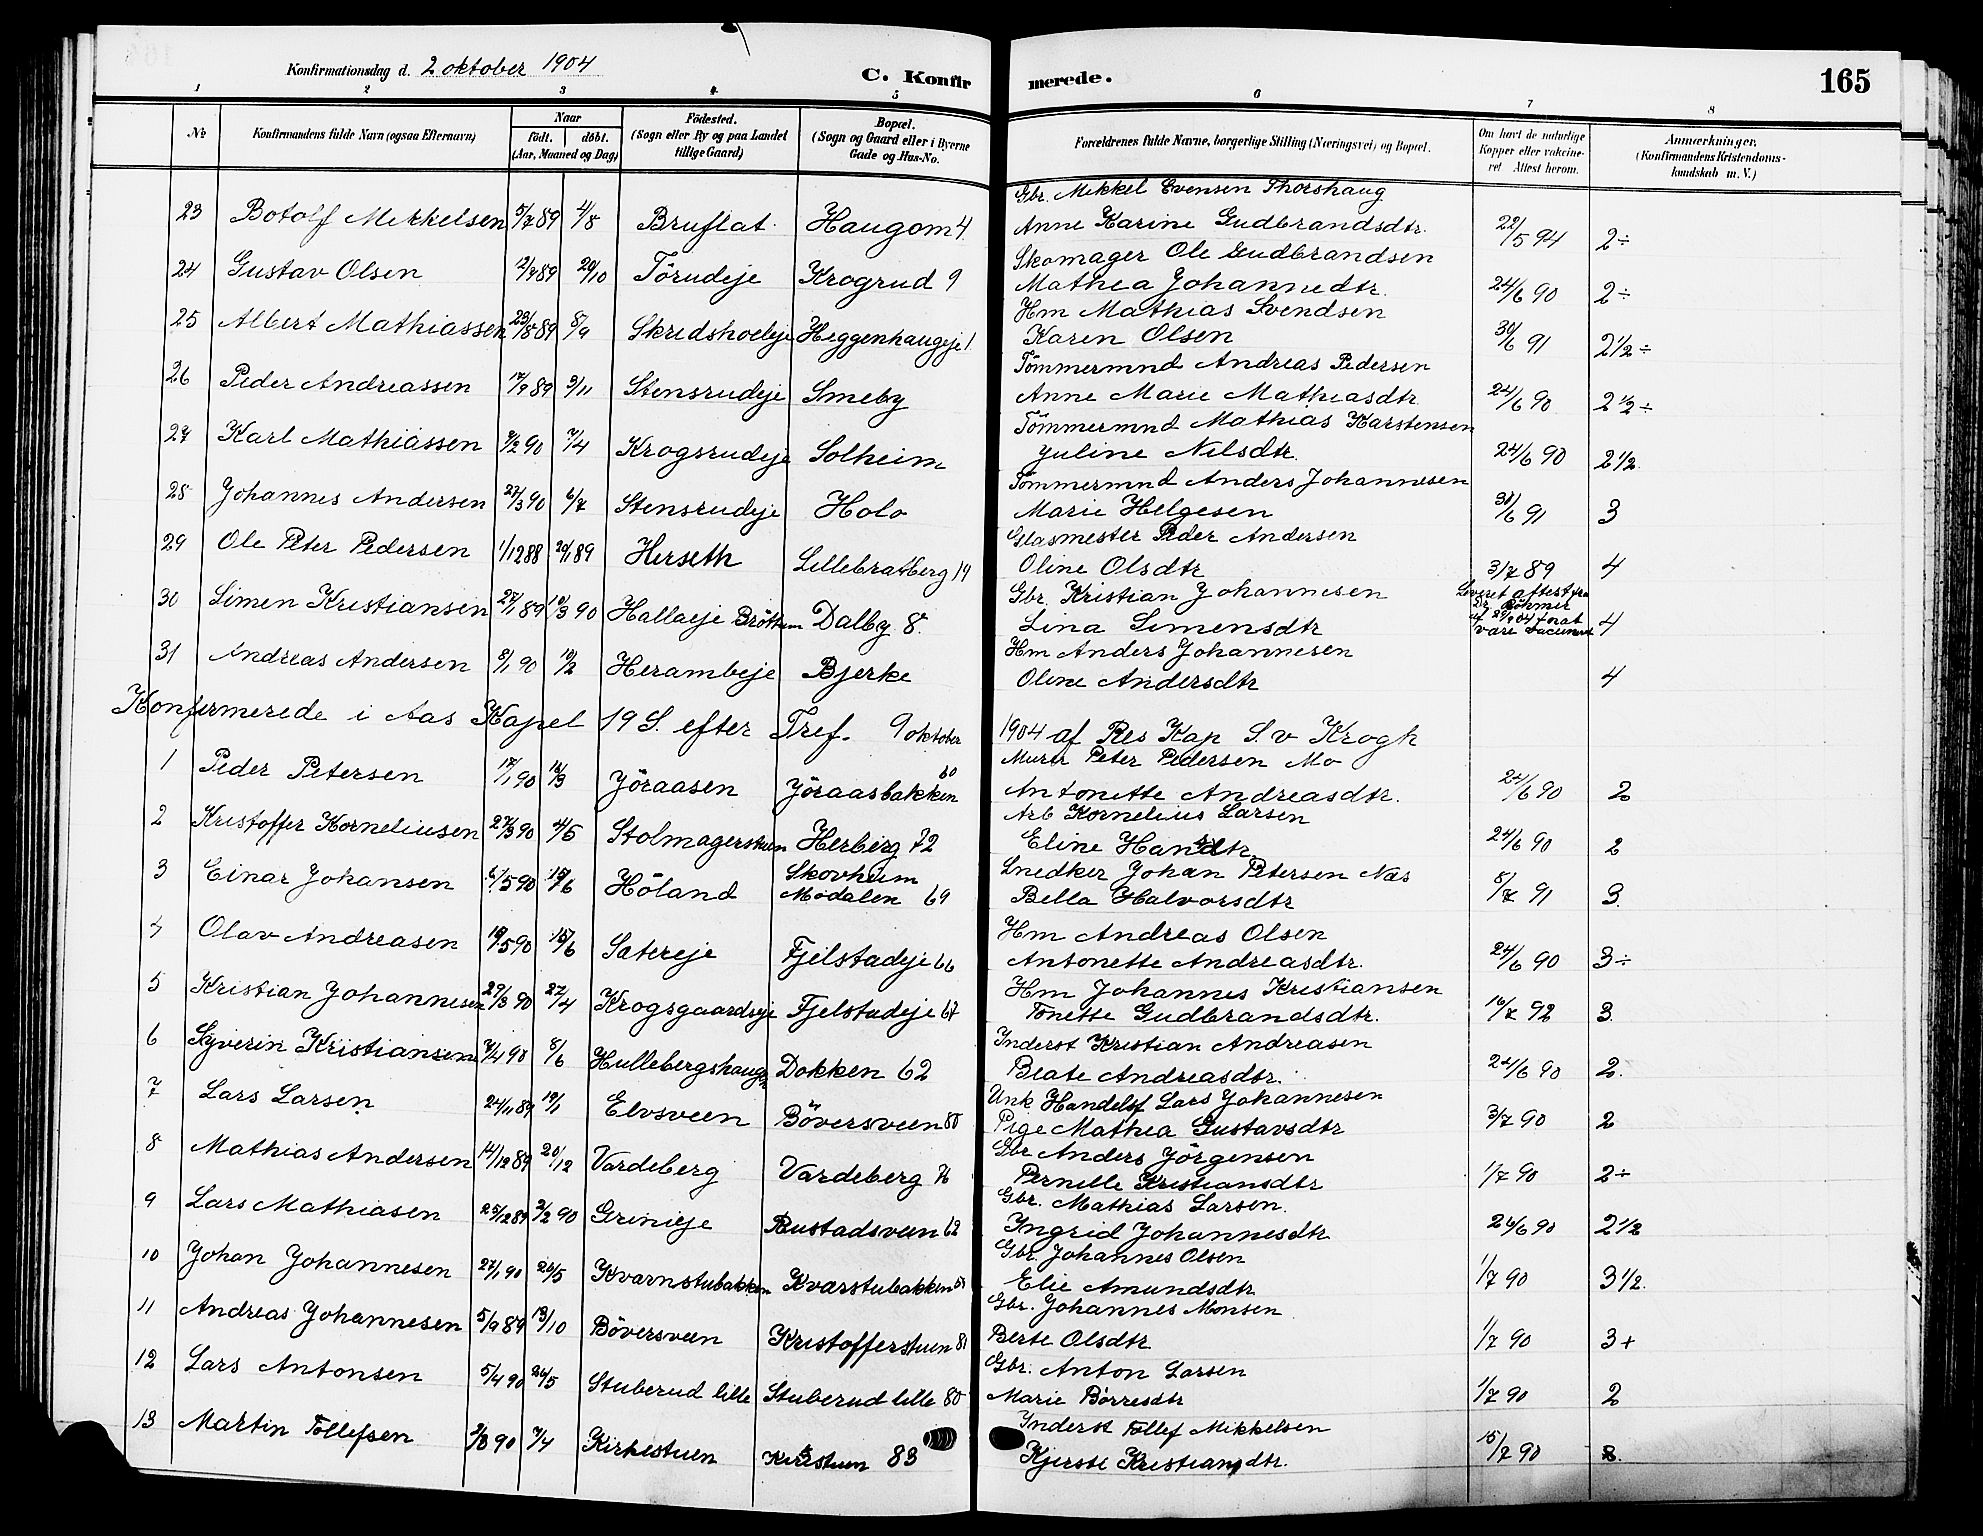 Konfirmationsdag d. 2 oktober 1904 C. Konfirmerede. 165
1 2 3 4 5 6 7 8
No Konfirmandens fulde Navn (ogsaa Efternavn) Naar födt. döbt. (Aar, Maaned og Dag) Födested. (Sogn eller By og paa Landet tillige Gaard) Bopæl. (Sogn og Gaard eller i Byerne Gade og Hus-No. Forældrenes fulde Navne, borgerlige Stilling (Næringsvei) og Bopæl. Om havt de naturlige Kopper eller vakcineret Attest herom. Anmærkninger. (Konfirmandens Kristendomskundskab m. V.)
Gbr. Mikkel Evensen Thorshaug
23 Botolf Mikkelsen 5/7 89 4/8 Bruflat Haugom 4. Anne Karine Gudbrandsdtr. 22/5 94 2÷
Skomager Ole Gudbrandsen
24 Gustav Olsen 2/9 89 20/10 Törudeje Krogrud 9 Mathea Johannedtr. 24/6 90 2÷
Hm Mathias Svendsen
25 Albert Mathiassen 23/8 89 8/9 Skredshoeleje Heggenhaugeje 1 Karen Olsen 30/6 91 2 1/2÷
Tömmermnd Andreas Pedersen
26 Peder Andreassen 17/9 89 3/11 Stensrudeje Smeby Anne Marie Mathiasdtr 24/6 90 2 1/2÷
Tömmermnd Mathias Karstensen
27 Karl Mathiassen 7/2 90 7/4 Krogsrudeje Solheim Juline Nilsdtr. 24/6 90 2 1/2
Tömmermnd Anders Johannesen
28 Johannes Andersen 27/3 90 6/7 Stensrudeje Holo Marie Helgesen 30/6 91 3
Glasmester Peder Andersen
29 Ole Peter Pedersen 1/12 88 20/1 89 Herseth Lillebratberg 14 Oline Olsdtr 3/7 89 4
Gbr. Kristian Johannesen
30 Simen Kristiansen 27/1 89 10/3 90 Hallaeje Bröttum Dalby 8. Lina Simensdtr Leveret attest fra Dr. Böhmer af 29/9 04 for at være vaccineret 4
Hm Anders Johannesen
31 Andreas Andersen 8/1 90 10/2 Herambeje Bjerke Oline Andersdtr 4
Konfirmerede i Aas Kapel 19 S. efter Tref. 9 oktober 1904 af Res Kap S. v Krogh
Murer Peter Pedersen Mo
1 Peder Petersen 17/1 90 16/3 Jöraasen Jöraasbakken 60 Antonette Andreasdtr. 24/6 90 2
Arb Kornelius Larsen
2 Kristoffer Korneliusen 27/3 90 4/5 Stolmagerstuen Herberg 72 Eline Hansdtr 24/6 90 2
Snedker Johan Petersen Næs
3 Einar Johansen 6/5 90 15/6 Höland Skovheim Mödalen 69 Bella Halvorsdtr 8/7 91 3.
Hm Andreas Olsen
4 Olav Andreasen 19/5 90 15/6 Satereje Fjelstadeje 66 Antonette Andreasdtr. 24/6 90 3÷
Hm Johannes Kristiansen
5 Kristian Johannesen 29/3 90 27/4 Krogsgaardseje Fjelstadeje 67 Tonette Gudbrandsdtr. 16/7 92 3
Inderst Kristian Andreasen
6 Syverin Kristiansen 7/4 90 8/6 Hullebergshaugen Dokken 62 Beate Andreasdtr. 24/6 90 2.
Unk Handelsf Lars Johannesen
7 Lars Larsen 24/11 89 19/1 Elvsveen Böversveen 80 Pige Mathea Gustavsdtr 3/7 90 2
Gbr Anders Jörgensen
8 Mathias Andersen 14/12 89 20/12 Vardeberg Vardeberg 76 Pernille Kristiansdtr 1/7 90 2÷
Gbr. Mathias Larsen.
9 Lars Mathiasen 25/12 89 2/2 90 Grinieje Rustadsveen 62 Ingrid Johannesdtr 24/6 90 2 1/2
Gbr. Johannes Olsen
10 Johan Johannesen 27/1 90 26/5 Kvarnstubakken Kvarstubakken 68 Elie Amundsdtr 1/7 90 3 1/2.
Gbr. Johannes Monsen
11 Andreas Johannesen 5/9 89 13/10 Böversveen Kristofferstuen 81 Berte Olsdtr 1/7 90 3+
Gbr. Anton Larsen
12 Lars Antonsen 5/4 90 26/5 Stuberud lille Stuberud lille 80 Marie Börresdtr 1/7 90 2
Inderst Tollef Mikkelsen
13 Martin Tollefsen 2/3 90 7/4 Kirkestuen Kirkestuen 83 Kjersti Kristiansdtr. 15/7 90 2.